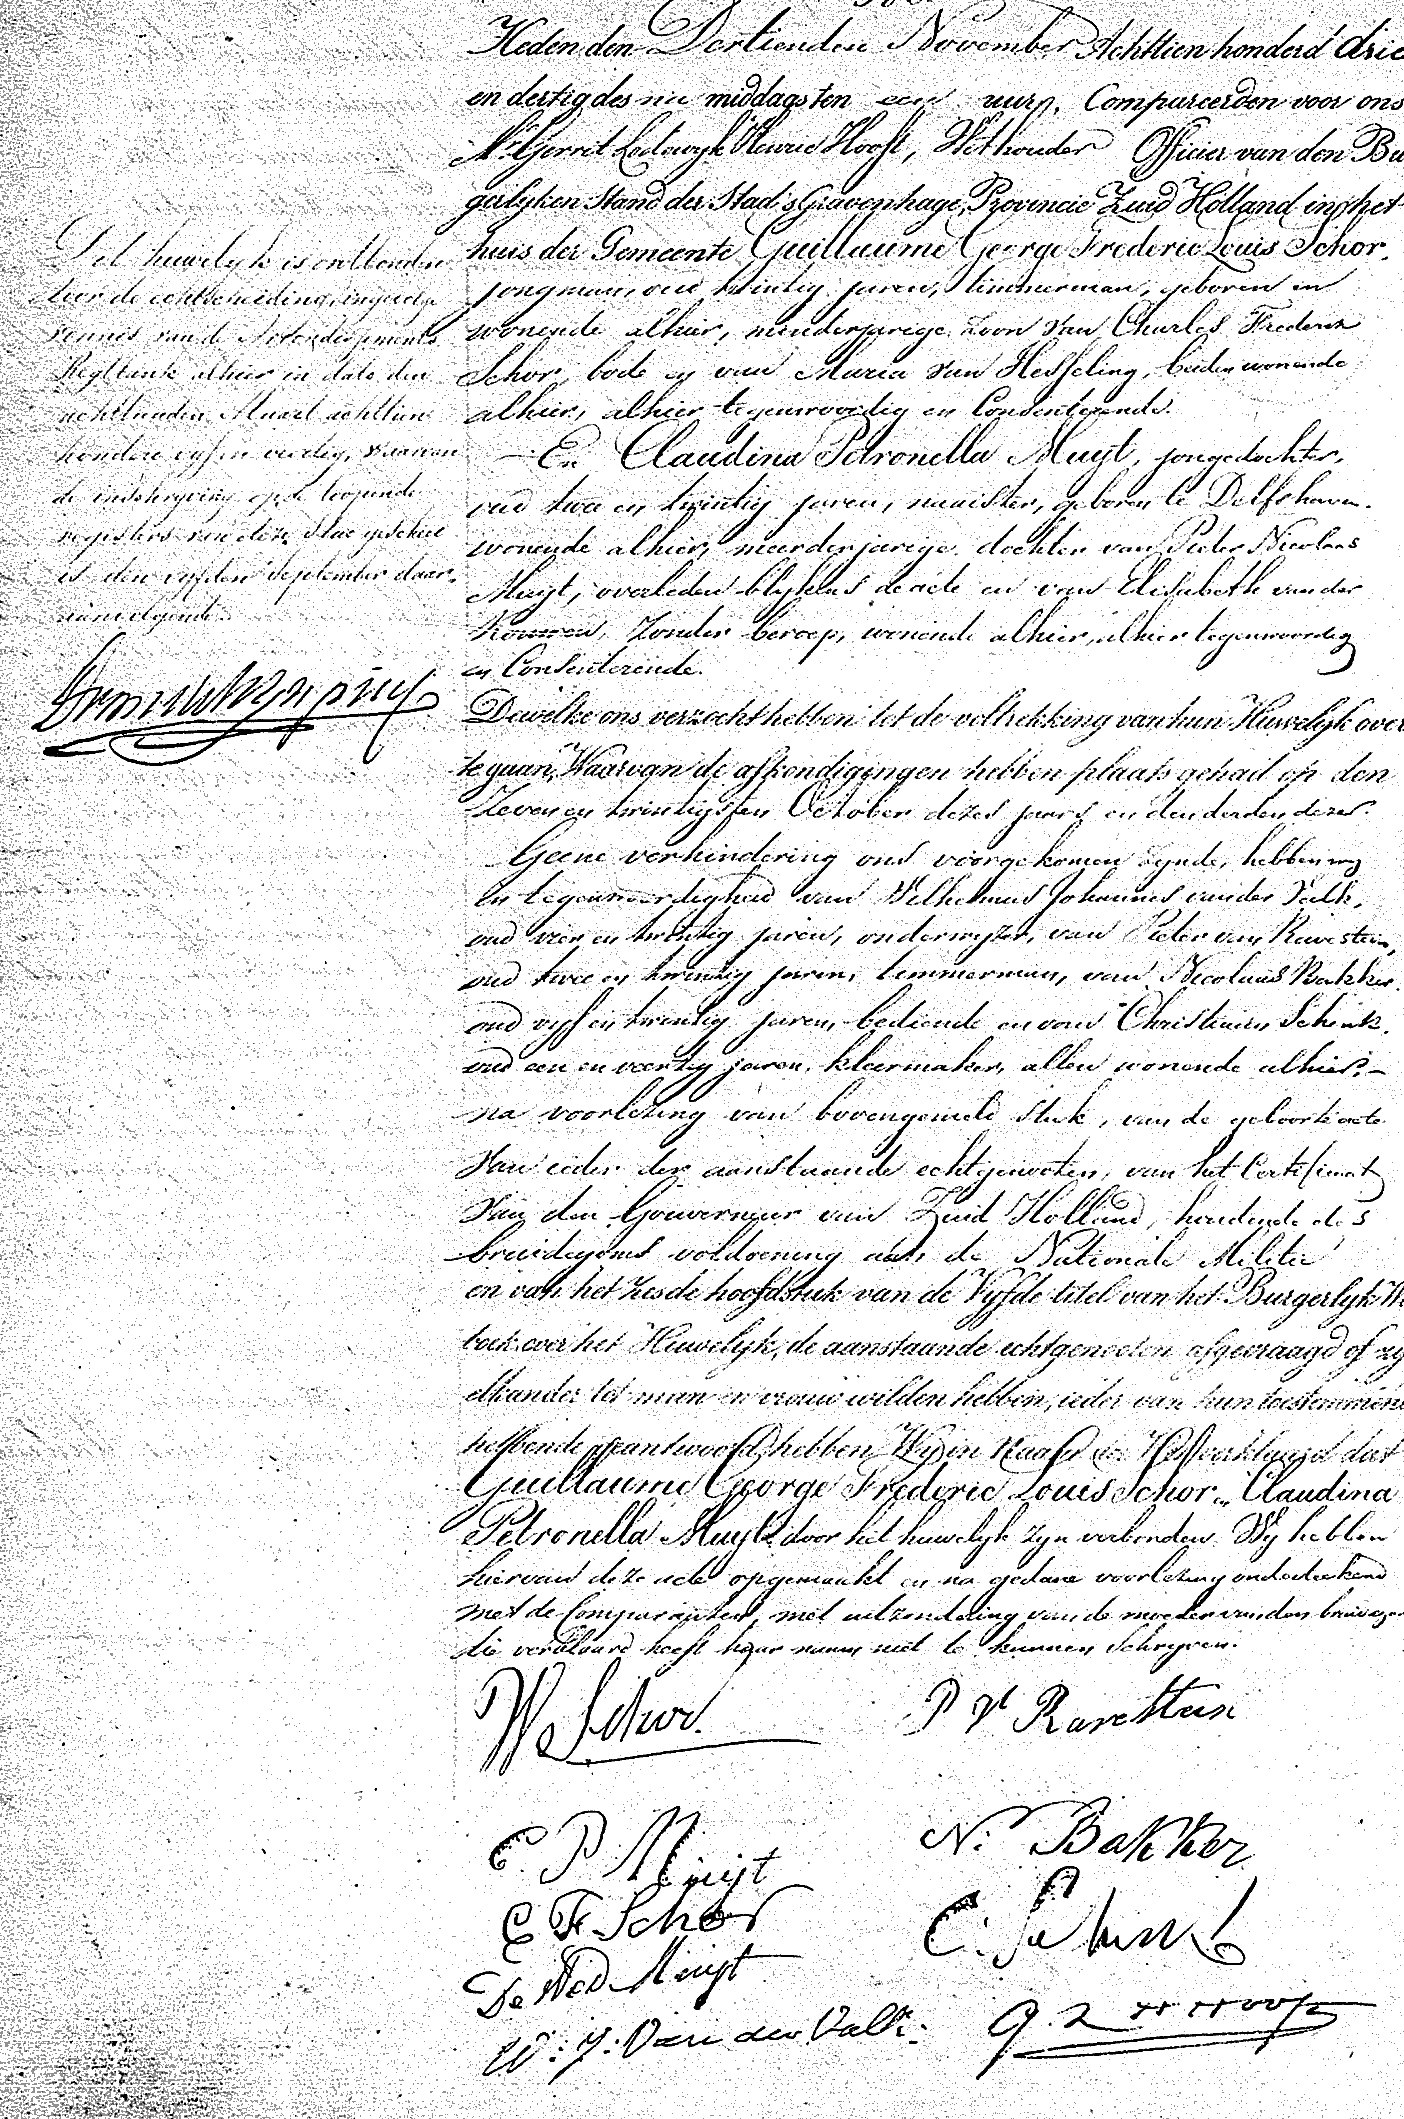 Heden den Dertienden November Achttien honderd drie
en dertig des na middags ten een ure, Compareerden voor ons
Mr. Gerrit Lodewyk Henrie Hooft, Wethouder Officier van den Bu
gerlyken Stand der Stad 's Gravenhage, Provincie Zuid Holland in het
huis der Gemeente Guillaume George Frederic Louis Schor,
jongman, oud twintig jaren, timmerman, geboren en
wonende alhier, minderjarige zoon van Charles Frederik
Schor, bode en van Maria van Hesseling, beiden wonende
alhier, alhier tegenwoordig en Consenteerende.
En Claudina Petronella Muyt, jongedochter,
oud twee en twintig jaren, naaister, geboren te Delfshaven.
wonende alhier, meerderjarige dochter van Pieter Nicolaas
Muyt, overleden blykens de acte en van Elisabeth van der
zonder beroep, wonende alhier, alhier tegenwoordig
en Consenterende.
Dewelke ons verzocht hebben tot de voltrekking van hun Huwelyk over
te gaan, Waarvan de afkondigingen hebben plaats gehad op den
Zeven en twintigsten October dezes jaars en den derden dezer.
Geene verhindering ons voorgekomen zynde, hebben wy
in tegenwoordigheid van Wilhelmus Johannes van der Valk,
oud vier en twintig jaren, onderwyzer, van Pieter van Ravestein,
oud twee en twintig jaren, timmerman, van Nicolaas Bakker,
oud vyf en twintig jaren, bediende en van Christiaan Schink,
oud een en veertig jaren, kleermaker, allen wonende alhier.
na voorlezing van bovengemeld stuk, van de geboorte acte
van ieder der aanstaande echtgenooten, van het Certificaat
van den Gouverneur van Zuid Holland, houdende des
bruidegoms voldoening aan de Nationale Militie
en van het zesde hoofdstuk van de Vyfde titel van het Burgerlyk W
boek over het Huwelyk, de aanstaande echtgenooten afgevraagd of zy
elkander tot man en vrouw wilden hebben, ieder van hun toestemmend
hebbende geantwoord, hebben Wy in Naam der Wet verklaard dat
Guillaume George Frederic Louis Schor en Claudina
Petronella Muyt door het huwelyk zyn verbonden. Wy hebben
hiervan deze acte opgemaakt en na gedane voorlezing onderteekend
met de Comparanten, met uitzondering van de moeder van den bruidegom
die verklaard heeft haar naam niet te kunnen schryven.
Dit huwelyk is ontbonden
door de echtscheiding, ingevolge
vonnis van de Arrondissements
Regtbank alhier in dato den
achttienden Maart achttien
honderd vyf en veertig, waarvan
de inschryving op de loopende
registers van dezen Staat geschied
is den vyfden September daar-
aanvolgende.
W Schor.
P. vn Ravestein
C P Muijt
N. Bakker
C F Schor
C. Schink
De Wed Muijt
W. J. Van der Valk.
G L H Hooft